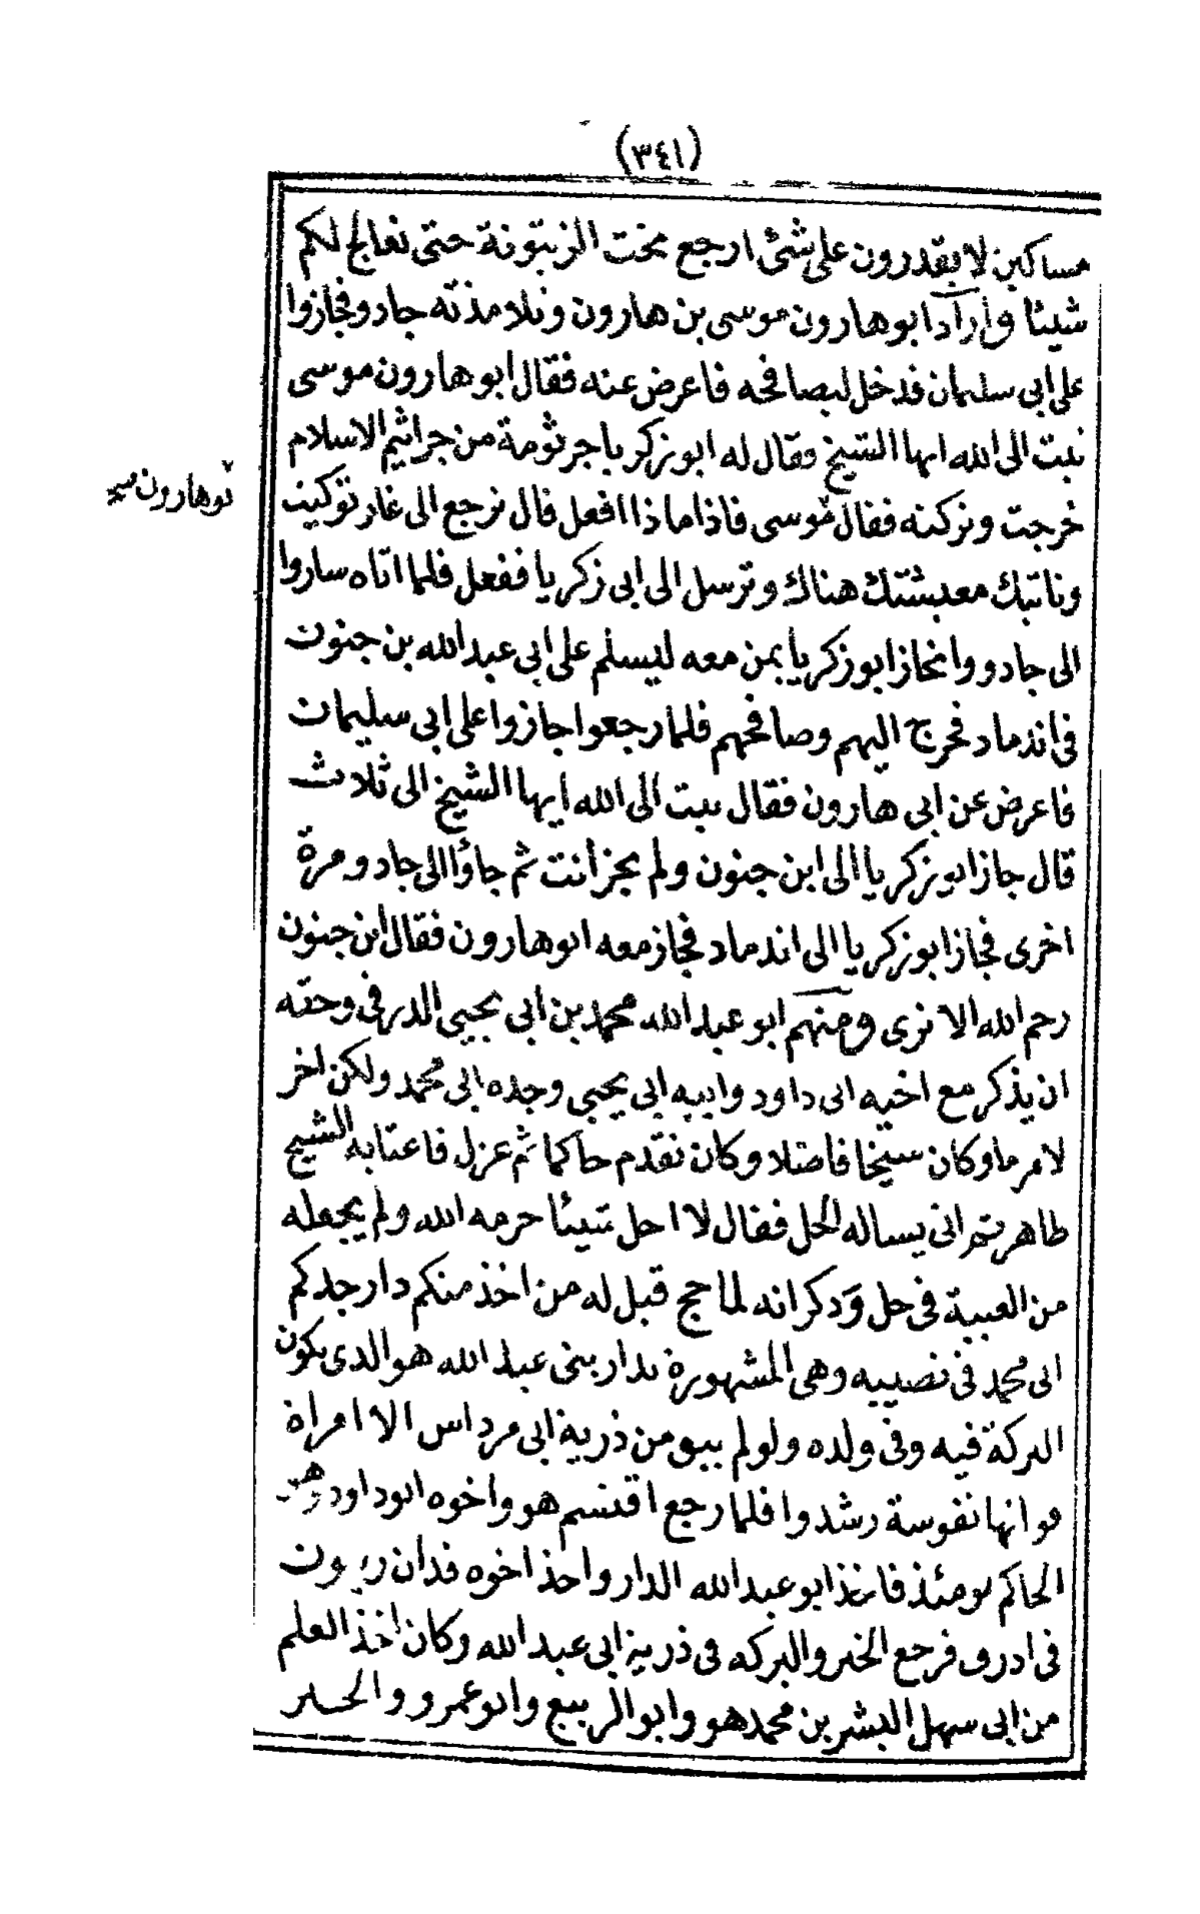 (٣٤١)
مساكين لا يقدرون على شئ ارجع تحت الزيتونة حتى نعالج لكم
شيئا وأراد ابو هارون موسى بن هارون وتلامذته جادو فجازوا
على ابى سليمان فدخل ليصافحه فاعرض عنه فقال ابو هارون موسى
تبت الى الله ايها الشيخ فقال له ابو زكريا جرثومة من جراثيم الاسلام
خرجت وتركته فقال موسى فاذا ماذا افعل قال ترجع الى غار توكيت
وناتيك معيشتك هناك وترسل الى ابى زكريا ففعل فلما اتاه ساروا
الى جادو وانحاز ابو زكريا بمن معه ليسلم على ابى عبد الله بن جنون
فى اندماد فخرج اليهم وصافحهم فلما رجعوا جازوا على ابى سليمان
فاعرض عن ابى هارون فقال تبت الى الله ايها الشيخ الى ثلاث
قال جاز ابو زكريا الى ابن جنون ولم يجز أنت ثم جاؤا الى جادو مرة
اخرى فجاز ابو زكريا الى اندماد فجاز معه ابو هارون فقال ابن جنون
رحم الله الا نرى ومنهم ابو عبد الله محمد بن ابى يحيى الدرفى وحقه
ان يذكر مع اخيه ابى داود وابيه ابى يحيى وجده ابى محمد ولكن اخر
لامر ما وكان شيخا فاضلا وكان تقدم حاكما ثم عزل فاغتابه الشيخ
طاهر فاتى يساله الحل فقال لا احل شيئا حرمه الله ولم يجعله
من الغيبة فى حل وذكر انه لما حج قيل له من اخذ منكم دار جدكم
ابى محمد فى نصيبه وهى المشهورة بدار بنى عبد الله هو الذى يكون
البركة فيه وفى ولده ولو لم يبق من ذرية ابى مرداس الا امراة
موانها نفوسة رشدوا فلما رجع اقتسم هو واخوه ابو داود وهو
الحاكم يومئذ فاخذ ابو عبد الله الدار واخذ اخوه فدان زيتون
فى ادرف فرجع الخير والبركه فى ذرية ابى عبد الله وكان اخذ العلم
من ابى سهل البشر بن محمد هو وابو الربيع وابو عمرو والخير
ابو هارون